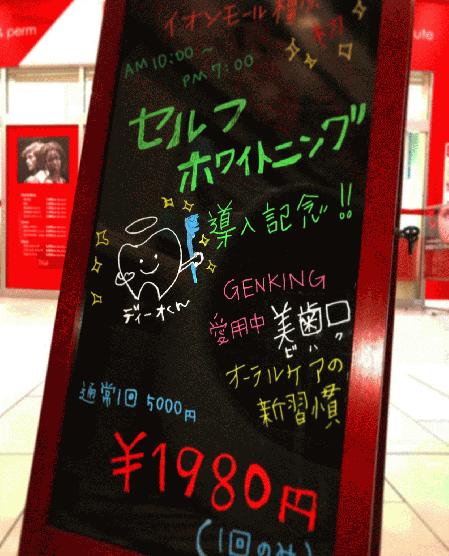 イオンモール
AM 10:00～
PM 7:00
セルフ
ホワイトニング
導入記念!!
GENKING
愛用中 美歯口
ビハク
オーラルケアの
新習慣
通常1回 5000円
¥1980円
(1回のみ)
perm